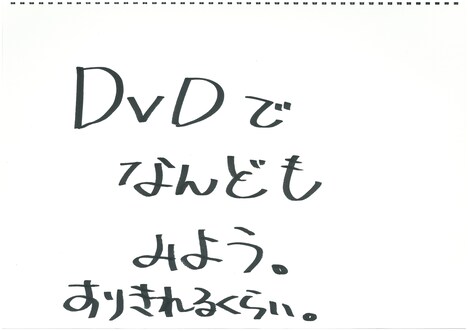 DvDで
なんども
みよう。
すりきれるくらい。